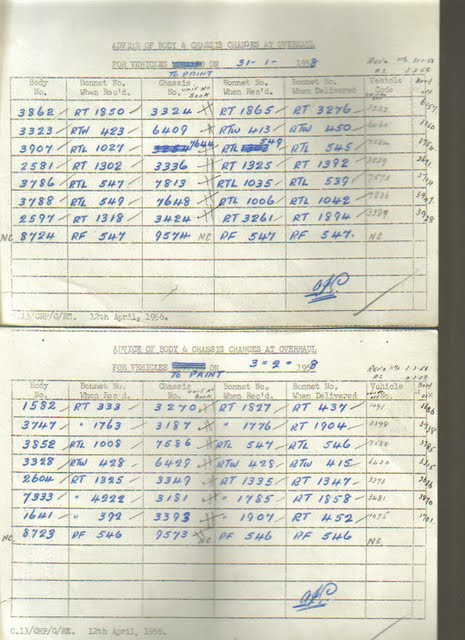 ADVICE OF BODY & CHASSIS CHANGES AT OVERHAUL
FOR VEHICLES ON 31-1- 1958
TO PAINT
Body Bonnet No. Chassis Unit No Bonnet No. Bonnet No. Vehicle Body
No. When Rec'd. No. Book When Delivered Code off
3862 RT 1850 3324 RT 1865 RT 3276
3323 RTW 423 6409 RTW 413 RTW 450
3907 RTL 1027 7644 RTL 549 RTL 545
2581 RT 1302 3336 RT 1325 RT 1392
3786 RTL 547 7813 RTL 1035 RTL 539
3788 RTL 549 7648 RTL 1006 RTL 1042
2597 RT 1318 3424 RT 3261 RT 1894
NC 8724 RF 547 9574 NC RF 547 RF 547. NC
C.13/CHP/G/RE. 12th April, 1956.
ADVICE OF BODY & CHASSIS CHANGES AT OVERHAUL
FOR VEHICLES ON 3-2- 1958
TO PAINT
Body Bonnet No. Chassis Unit No Bonnet No. Bonnet No. Vehicle Body
No. When Rec'd. No. Book When Rec'd. When Delivered No. off
1582 RT 333 3270 RT 1827 RT 437
3747 " 1763 3187 " 1776 RT 1904
3852 RTL 1008 7586 RTL 547 RTL 546
3328 RTW 428 6429 RTW 428 RTW 415
2604 RT 1325 3349 RT 1335 RT 1347
7333 " 4222 3181 " 1785 RT 1858
1641 " 392 3393 " 1907 RT 452
NC 8723 RF 546 9573 NC RF 546 RF 546 NC
C.13/CHP/G/RE. 12th April, 1956.